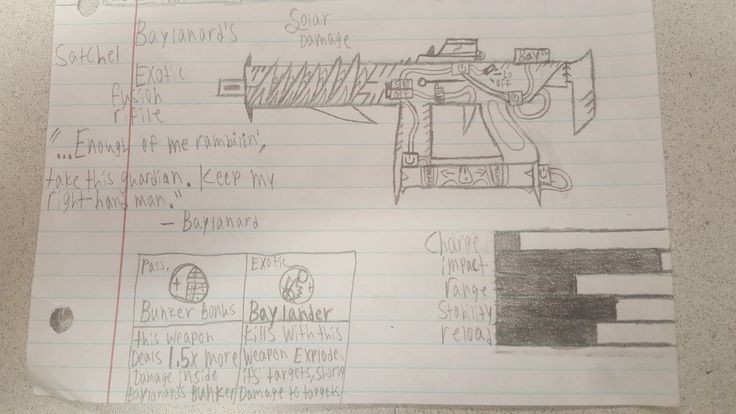 Baylanard's
Satchel
Solar
Damage
Exotic
fusion
rifile
"...Enough of me rambilin',
take this guardian. Keep my
right-hand man."
— Baylanard
Bay
Pass.
Bunker Bonks
this weapon
Deals 1.5x more
Damage inside
Baylanard's Bunker
Exotic
Baylander
Kills with this
weapon Explode
it's targets,
Damage to targets
Charge
impact
range
Stability
reload